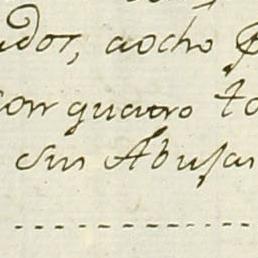 dos, aocho
con quatro to
sin Abusar